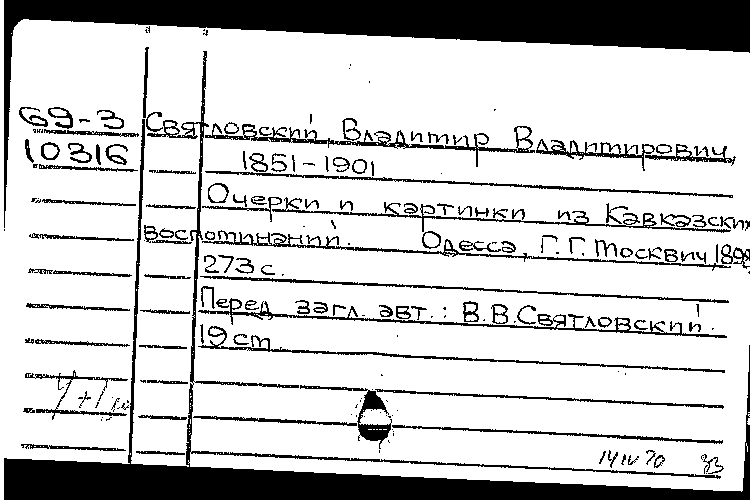 69-3 Святловский, Владимир Владимирович,
10316 1851-1901
Очерки и картинки из Кавказских
воспоминаний. Одесса, Г.Г. Москвич, 1898
273 с.
Перед загл. авт.: В.В. Святловский.
19 см.
14 IV 70